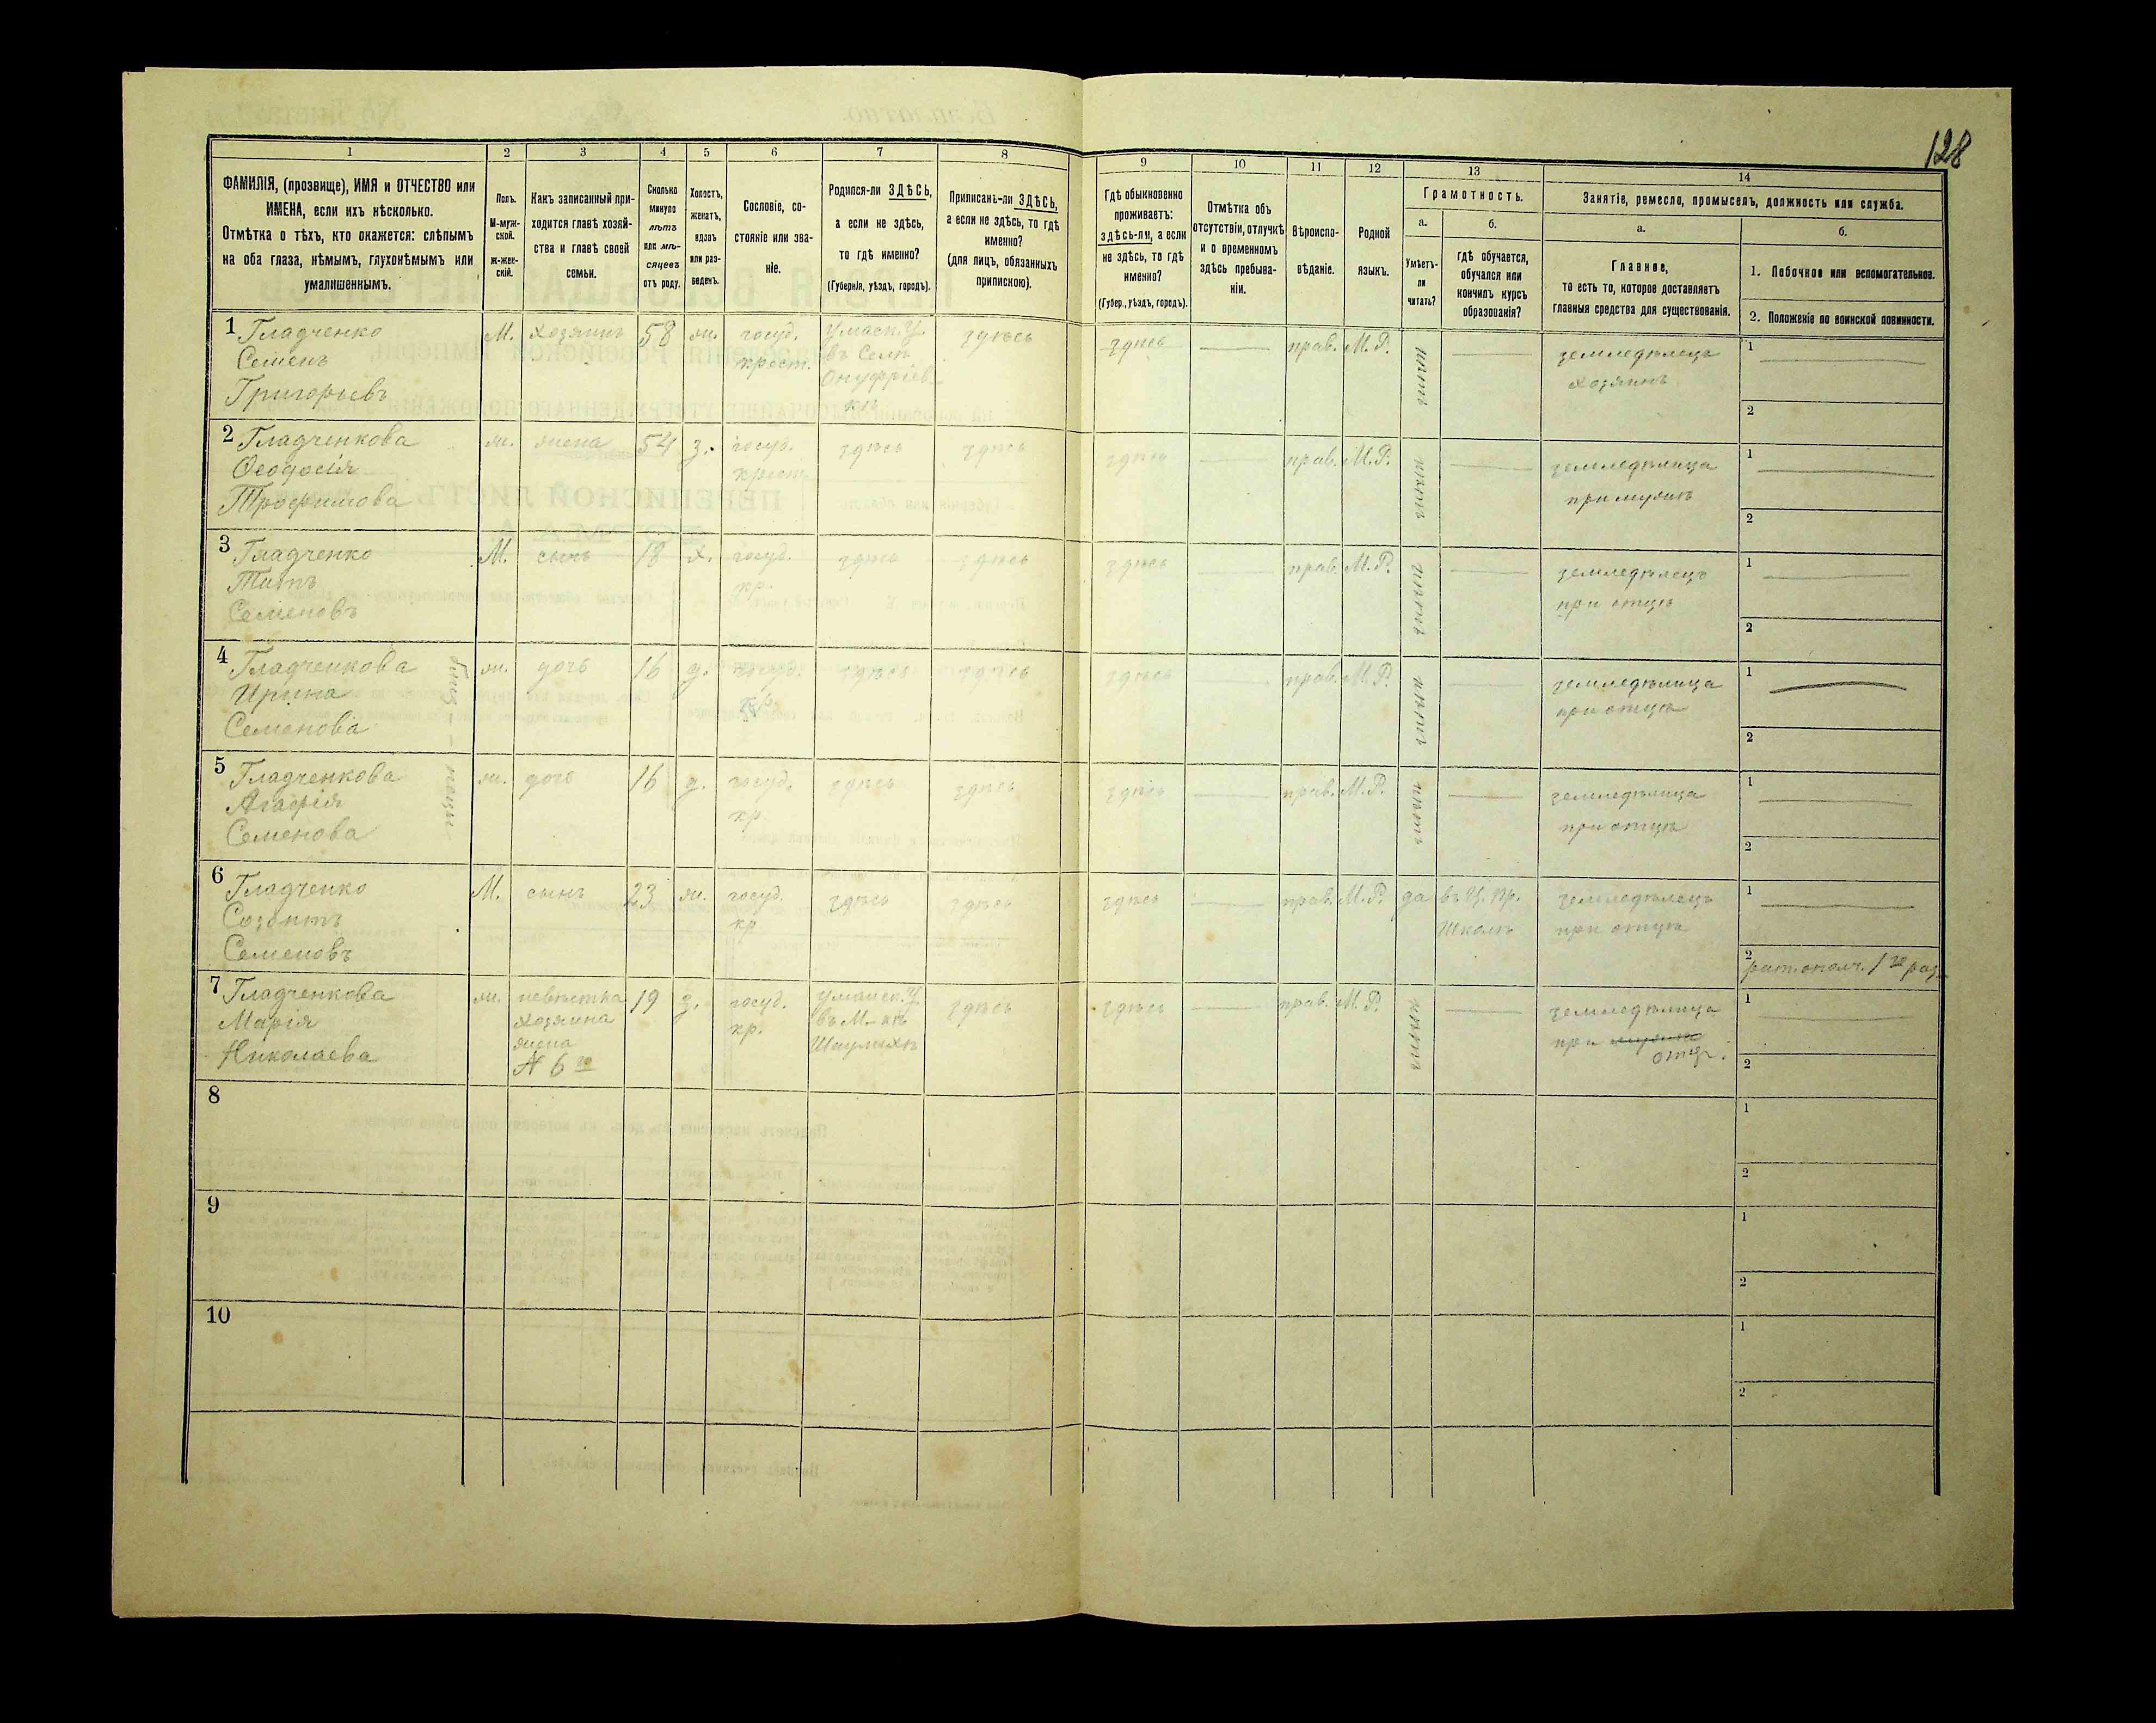 128
1
2
3
4
5
6
7
8
9
10
11
12
13
14
ФАМИЛІЯ, (прозвище), ИМЯ и ОТЧЕСТВО или
ИМЕНА, если ихъ нѣсколько.
Отмѣтка о тѣхъ, кто окажется: слѣпымъ
на оба глаза, нѣмымъ, глухонѣмымъ или
умалишеннымъ.
Полъ.
М-муж-
ской.
ж-жен-
скій.
Какъ записанный при-
ходится главѣ хозяй-
ства и главѣ своей
семьи.
Сколько
минуло
лѣтъ
или мѣ-
сяцевъ
отъ роду.
Холостъ,
женатъ,
вдовъ
или раз-
веденъ.
Сословіе, со-
стояніе или зва-
ніе.
Родился-ли ЗДѢСЬ,
а если не здѣсь,
то гдѣ именно?
(Губернія, уѣздъ, городъ).
Приписанъ-ли ЗДѢСЬ,
а если не здѣсь, то гдѣ
именно?
(для лицъ, обязанныхъ
припискою).
Гдѣ обыкновенно
проживаетъ:
здѣсь-ли, а если
не здѣсь, то гдѣ
именно?
(Губер., уѣздъ, городъ).
Отмѣтка объ
отсутствіи, отлучкѣ
и о временномъ
здѣсь пребыва-
ніи.
Вѣроиспо-
вѣданіе.
Родной
языкъ.
Грамотность.
а.
б.
Умѣетъ-
ли
читать?
гдѣ обучается,
обучался или
кончилъ курсъ
образованія?
Занятіе, ремесло, промыселъ, должность или служба.
а.
б.
Главное,
то есть то, которое доставляетъ
главныя средства для существованія.
1. Побочное или вспомогательное.
2. Положеніе по воинской повинности.
1 Гладченко
Семенъ
Григорьевъ
М.
хозяинъ
58
ж.
госуд.
крест.
Уманск. У.
въ Селѣ
Онуфріев-
кѣ
здѣсь
здѣсь
прав.
М. Р.
нѣтъ
земледѣлецъ
хозяинъ
1
2
2 Гладченкова
Ѳеодосія
Трофимова
ж.
жена
54
з.
госуд.
крест.
здѣсь
здѣсь
здѣсь
прав.
М. Р.
нѣтъ
земледѣлица
при мужѣ
1
2
3 Гладченко
Титъ
Семеновъ
М.
сынъ
18
х.
госуд.
кр.
здѣсь
здѣсь
здѣсь
прав.
М. Р.
нѣтъ
земледѣлецъ
при отцѣ
1
2
4 Гладченкова
Ирина
Семенова
близ-нецы
ж.
дочь
16
д.
госуд.
кр.
здѣсь
здѣсь
здѣсь
прав.
М. Р.
нѣтъ
земледѣлица
при отцѣ
1
2
5 Гладченкова
Агафія
Семенова
ж.
дочь
16
д.
госуд.
кр.
здѣсь
здѣсь
здѣсь
прав.
М. Р.
нѣтъ
земледѣлица
при отцѣ
1
2
6 Гладченко
Созонтъ
Семеновъ
М.
сынъ
23
ж.
госуд.
кр
здѣсь
здѣсь
здѣсь
прав.
М. Р.
да
въ Ц. пр.
школѣ
земледѣлецъ
при отцѣ
1
2
рат. ополч. 1го раз.
7 Гладченкова
Марія
Николаева
ж.
невѣстка
хозяина
жена
№ 6го
19
з.
госуд.
кр.
Уманск. У
въ М-кѣ
здѣсь
здѣсь
прав.
М. Р.
нѣтъ
земледѣлица
при мужѣ
отцѣ.
1
2
8
1
2
9
1
2
10
1
2